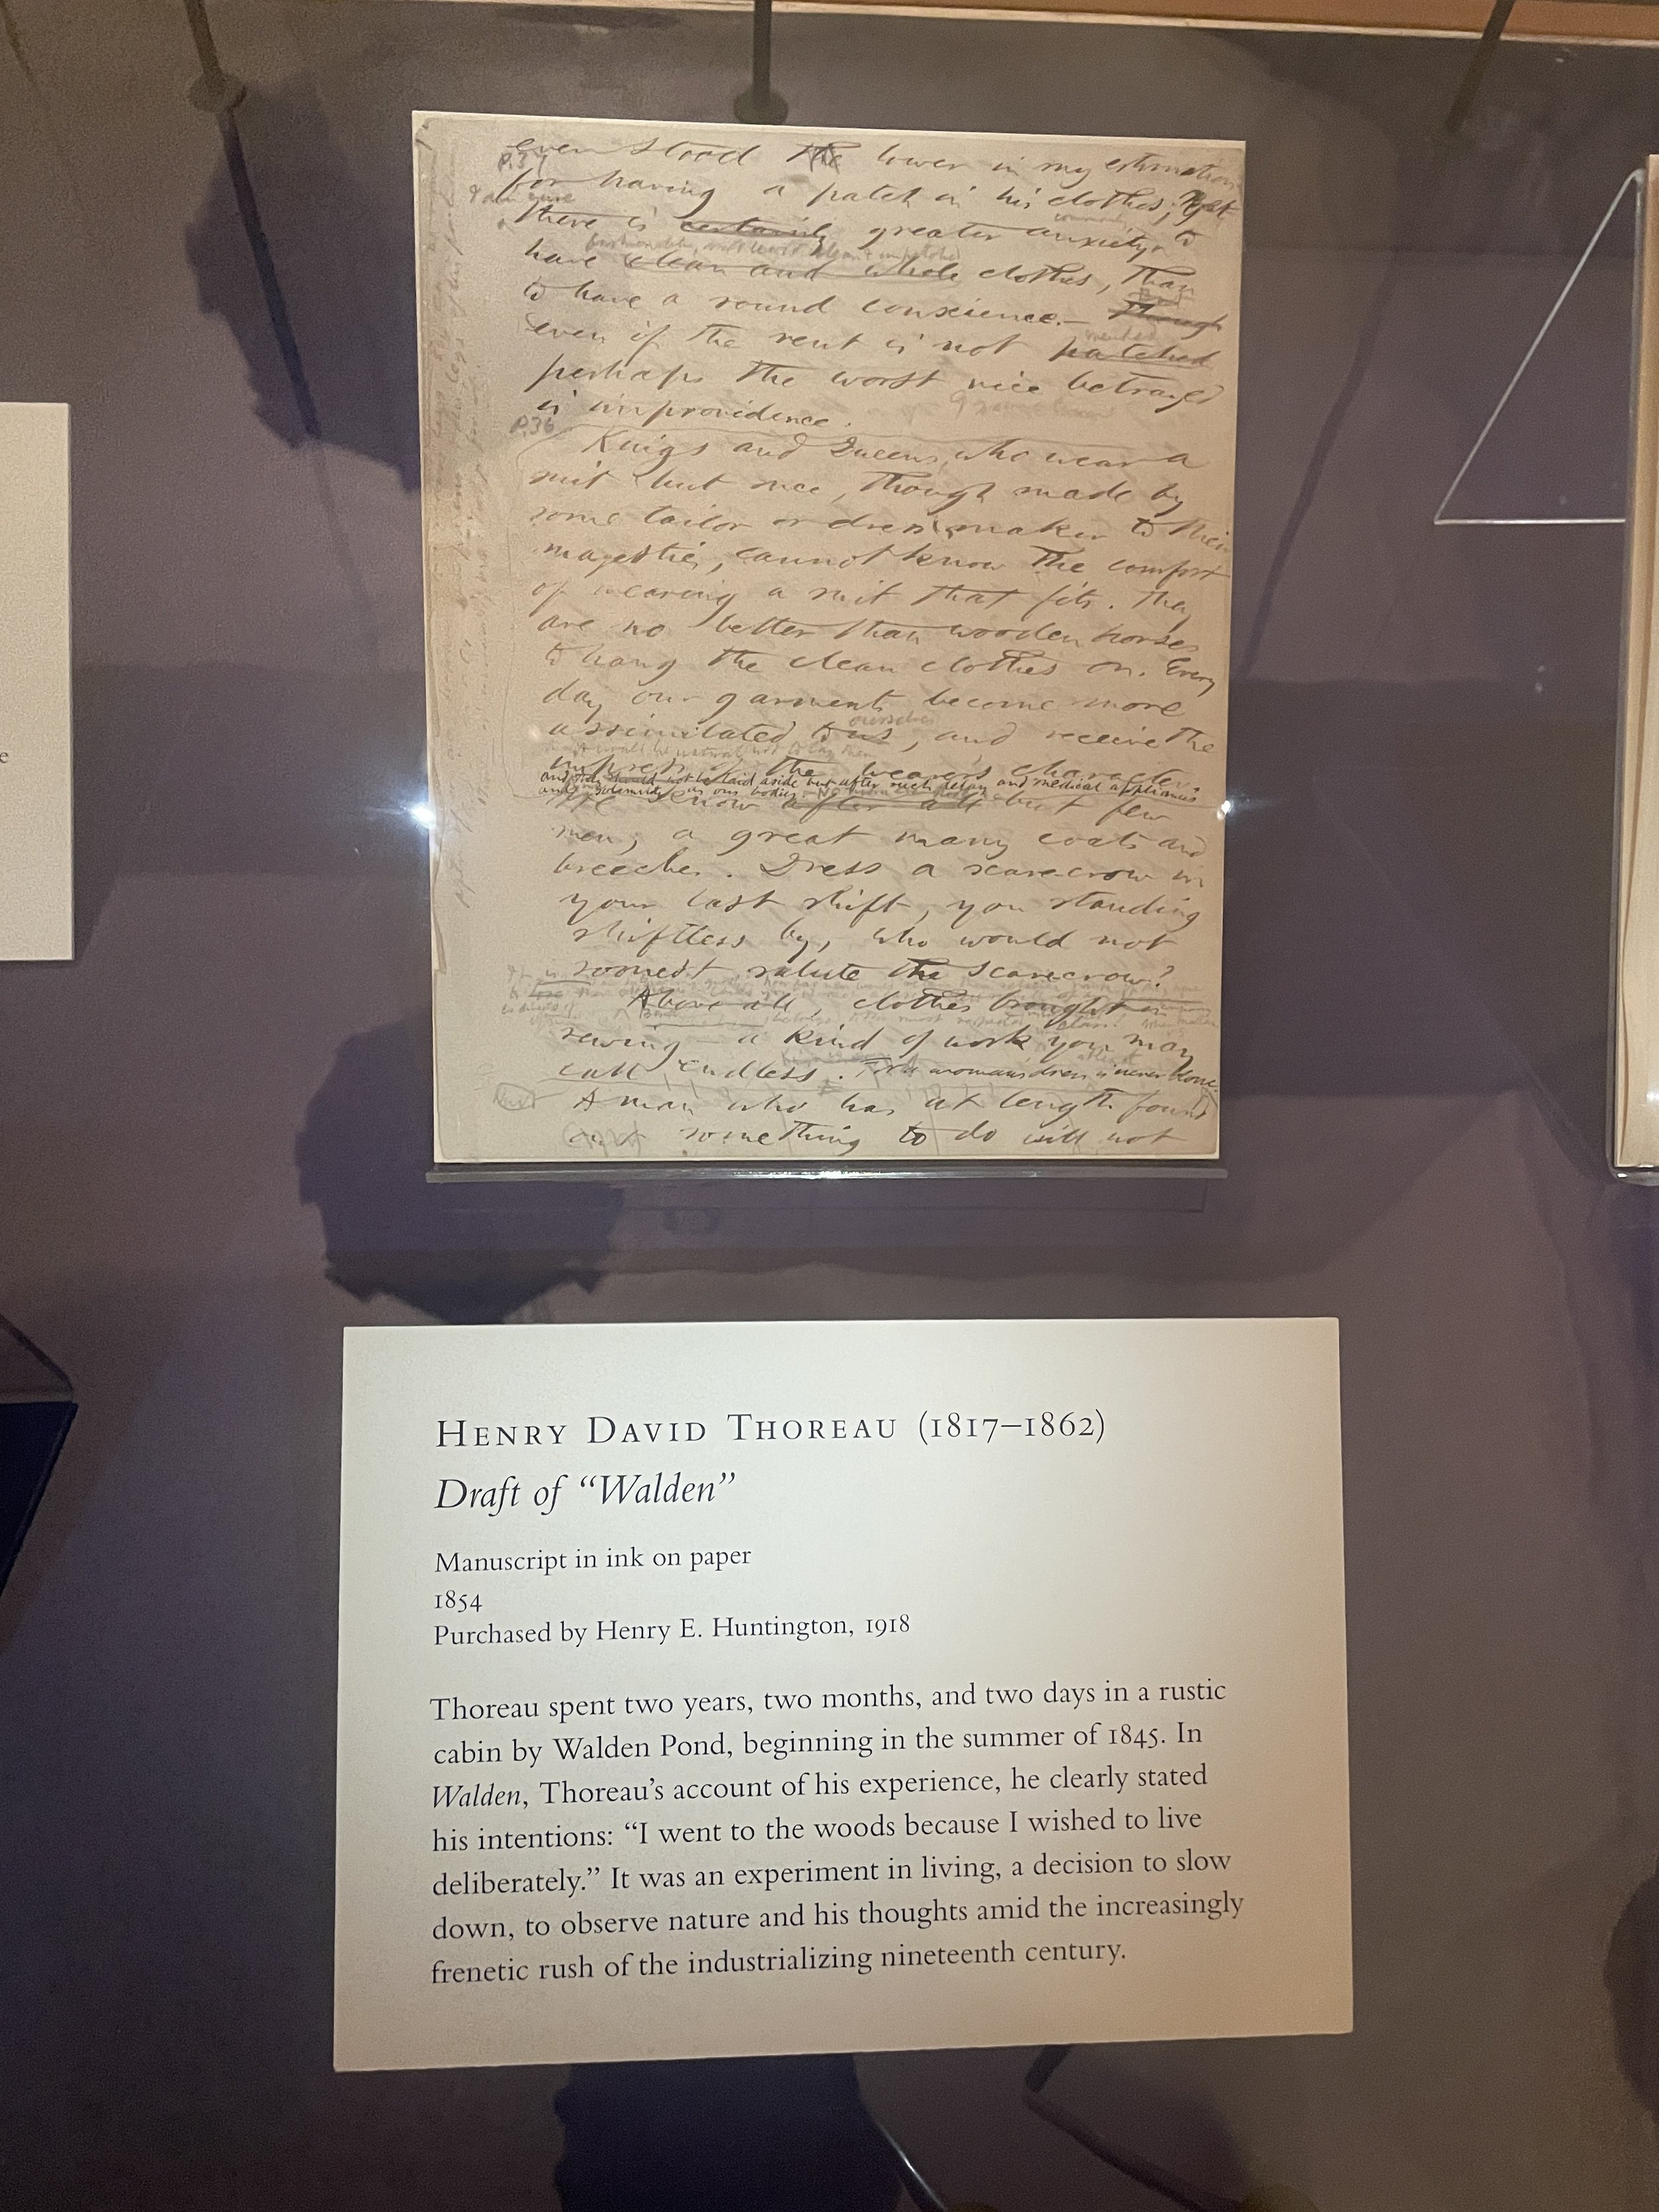 even stood the lower in my estimation
P.37
for having a patch in his clothes; Yet
I am sure
there is certainly greater anxiety, to
commonly
fashionable, or at least clean & unpatched
have clean and whole clothes, than
to have a sound conscience.— Though
But
even if the rent is not patched
mended
perhaps the worst vice betrayed
is improvidence.
P.36
Kings and Queens, who wear a
suit but once, though made by
some tailor or dress maker to their
magesties, cannot know the comfort
of wearing a suit that fits. They
are no better than wooden horses
to hang the clean clothes on. Every
day our garments become more
assimilated to us, and receive the
ourselves
impress of the wearer's character.
and should not be laid aside but after such delay and medical appliances
and solemnity as our bodies.
We know after all but few
men, a great many coats and
breeches. Dress a scarecrow in
your last shift, you standing
shiftless by, who would not
soonest salute the scarecrow?
Above all, clothes brought in
sewing — a kind of work you may
call endless. For a woman's dress is never done.
A man who has at length found
out something to do will not
e
HENRY DAVID THOREAU (1817–1862)
Draft of “Walden”
Manuscript in ink on paper
1854
Purchased by Henry E. Huntington, 1918
Thoreau spent two years, two months, and two days in a rustic
cabin by Walden Pond, beginning in the summer of 1845. In
Walden, Thoreau’s account of his experience, he clearly stated
his intentions: “I went to the woods because I wished to live
deliberately.” It was an experiment in living, a decision to slow
down, to observe nature and his thoughts amid the increasingly
frenetic rush of the industrializing nineteenth century.